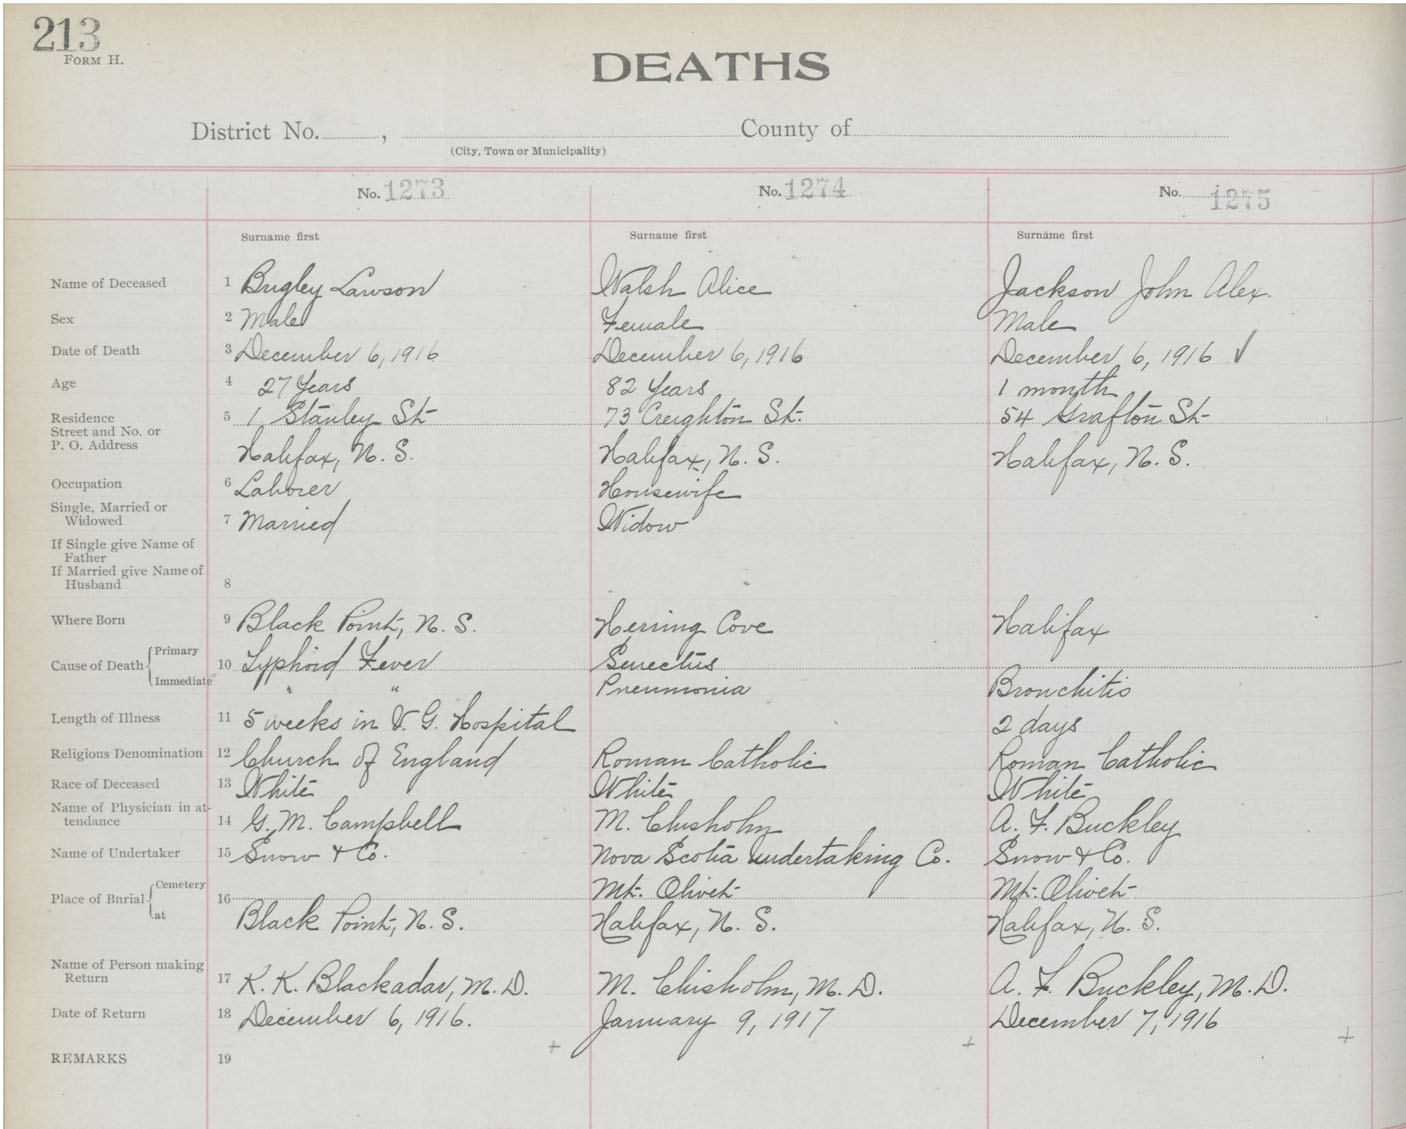 213
FORM H.
DEATHS
District No. , County of
(City, Town or Municipality)
No. 1273 No. 1274 No. 1275
Surname first Surname first Surname first
Name of Deceased 1 Bugley Lawson Walsh Alice Jackson John Alex.
Sex 2 Male Female Male
Date of Death 3 December 6, 1916 December 6, 1916 December 6, 1916 ✓
Age 4 27 Years 82 Years 1 month
Residence 5 1 Stanley St- 73 Creighton St. 54 Grafton St-
Street and No. or
P. O. Address Halifax, N. S. Halifax, N. S. Halifax, N. S.
Occupation 6 Laborer Housewife
Single, Married or
Widowed 7 Married Widow
If Single give Name of
Father
If Married give Name of
Husband 8
Where Born 9 Black Point, N. S. Herring Cove Halifax
Cause of Death { Primary 10 Typhoid Fever Senectus
Immediate " " Pneumonia Bronchitis
Length of Illness 11 5 weeks in V. G. Hospital 2 days
Religious Denomination 12 Church of England Roman Catholic Roman Catholic
Race of Deceased 13 White White White
Name of Physician in at-
tendance 14 G. M. Campbell M. Chisholm A. F. Buckley
Name of Undertaker 15 Snow & Co. Nova Scotia Undertaking Co. Snow & Co.
Place of Burial { Cemetery 16 Mt. Olivet Mt. Olivet
at Black Point, N. S. Halifax, N. S. Halifax, N. S.
Name of Person making
Return 17 K. K. Blackadar, M. D. M. Chisholm, M. D. A. F. Buckley, M. D.
Date of Return 18 December 6, 1916. January 9, 1917 December 7, 1916
REMARKS 19 + + +